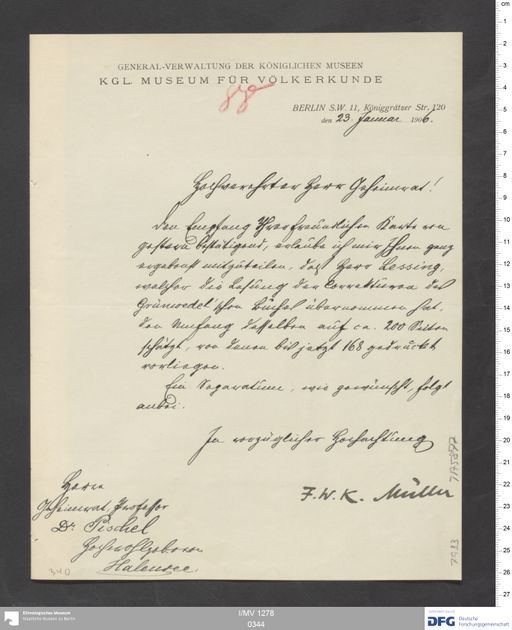 GENERAL-VERWALTUNG DER KÖNIGLICHEN MUSEEN
KGL. MUSEUM FÜR VÖLKERKUNDE
88
BERLIN S.W. 11, Königgrätzer Str. 120
den 23. Januar 1906.
Hochverehrter Herr Geheimrat!
Den Empfang Ihrer freundlichen Karte von
gestern bestätigend, erlaube ich mir Ihnen ganz
ergebenst mitzuteilen, daß Herr Lessing,
welcher die Lesung der Correcturen des
Grünwedel'schen Buches übernommen hat,
den Umfang desselben auf ca. 200 Seiten
schätzt, von denen bis jetzt 168 gedruckt
vorliegen.
Ein Separatum, wie gewünscht, folgt
anbei.
In vorzüglicher Hochachtung
F. W. K. Müller
Herrn
Geheimrat Professor
Dr. Pischel
Hochwohlgeboren
Halensee.
340
7933
Ethnologisches Museum
Staatliche Museen zu Berlin
I/MV 1278
0344
DFG
Deutsche
Forschungsgemeinschaft
cm
1
2
3
4
5
6
7
8
9
10
11
12
13
14
15
16
17
18
19
20
21
22
23
24
25
26
27